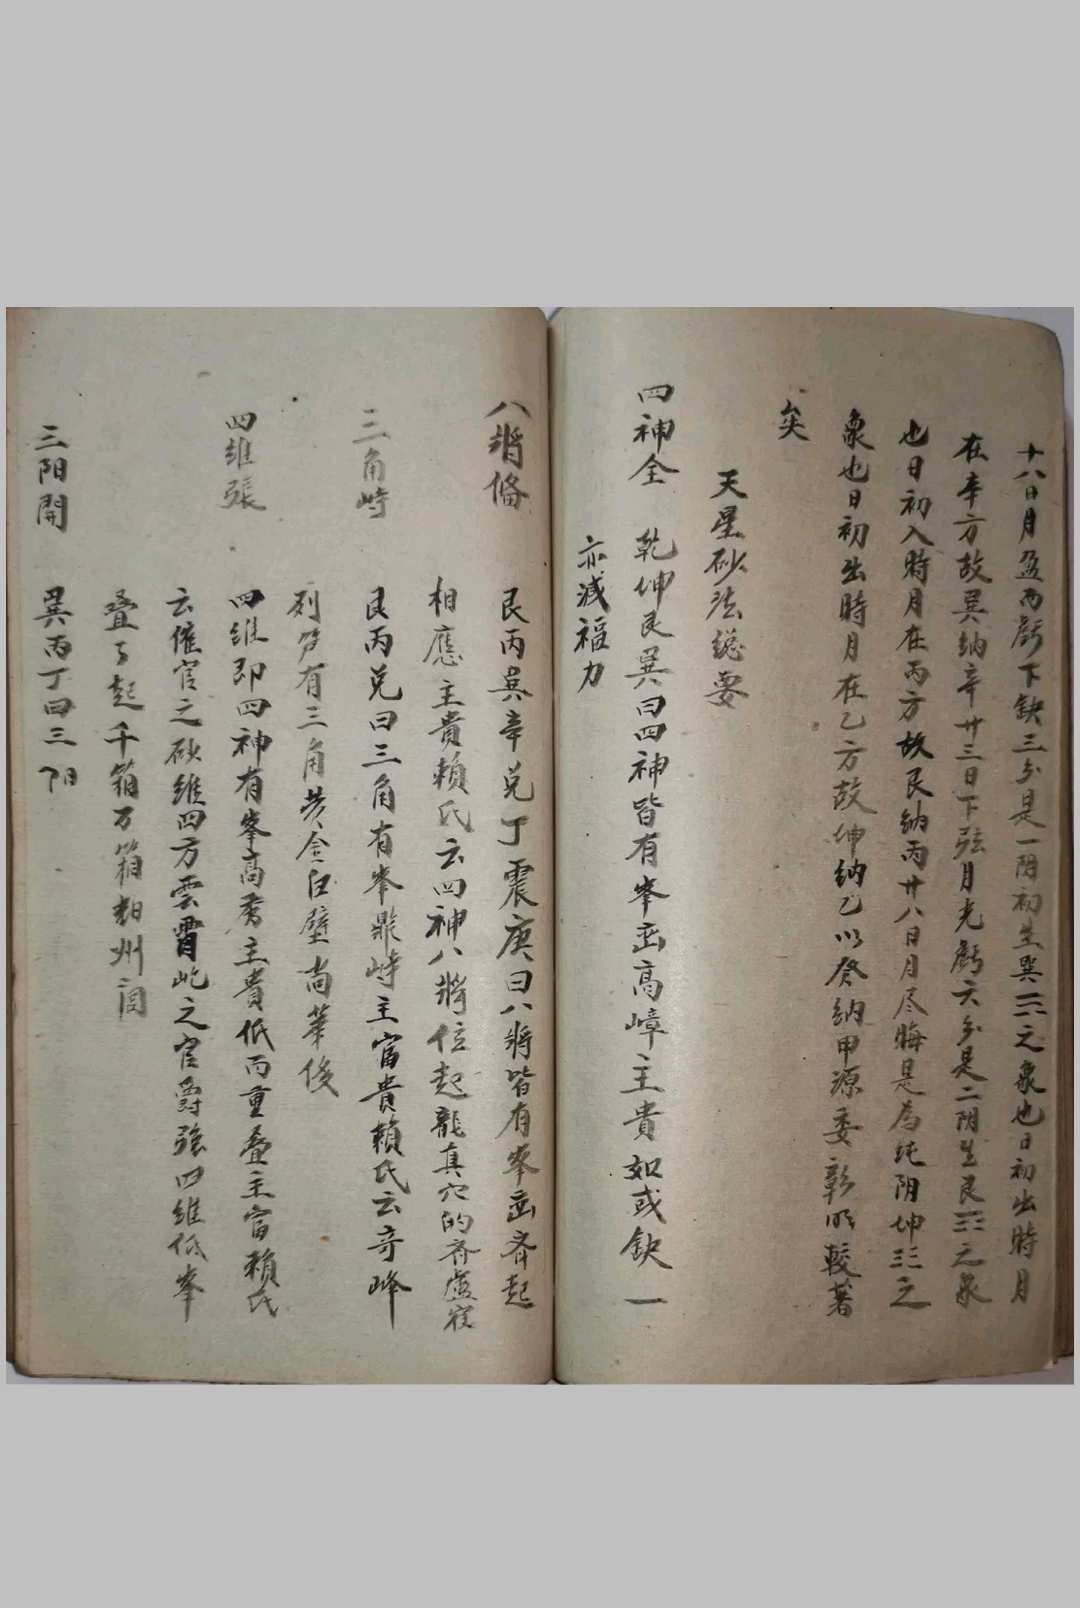 十八日月盈而虧下缺三分是一阴初生巽☴之象也日初出時月
在辛方故巽纳辛廿三日下弦月光虧六分是二阴生艮☶之象
也日初入時月在丙方故艮纳丙廿八日月尽晦是為纯阴坤☷之
象也日初出時月在乙方故坤纳乙以癸纳甲源委彰明較著
矣
天星砂法總要
四神全 乾坤艮巽曰四神皆有峯峦高嶂主貴如或缺一
亦減福力
八將備 艮丙巽辛兑丁震庚曰八將皆有峯峦齐起
相應主貴賴氏云四神八將位起龍真穴的齐
三角峙 艮丙兑曰三角有峯鼎峙主富貴賴氏云奇峰
列笋有三角黄金白璧尚華後
四维張 四维即四神有峯高秀主貴低而重叠主富賴氏
云催官之砂维四方雲霄屹之官爵強四维低峯
叠了起千箱万箱超州閭
三阳開 巽丙丁曰三阳